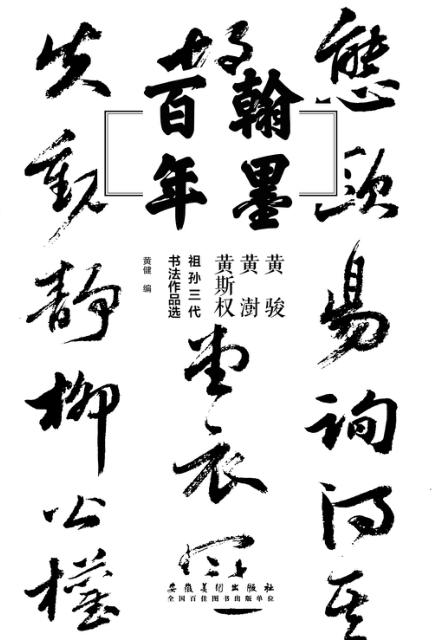 翰墨
百年
黄 骏
黄 澍
黄斯权
祖孙三代
书法作品选
黄健 编
態
易詢
衣
失動靜柳公權
安徽美术出版社
全国百佳图书出版单位